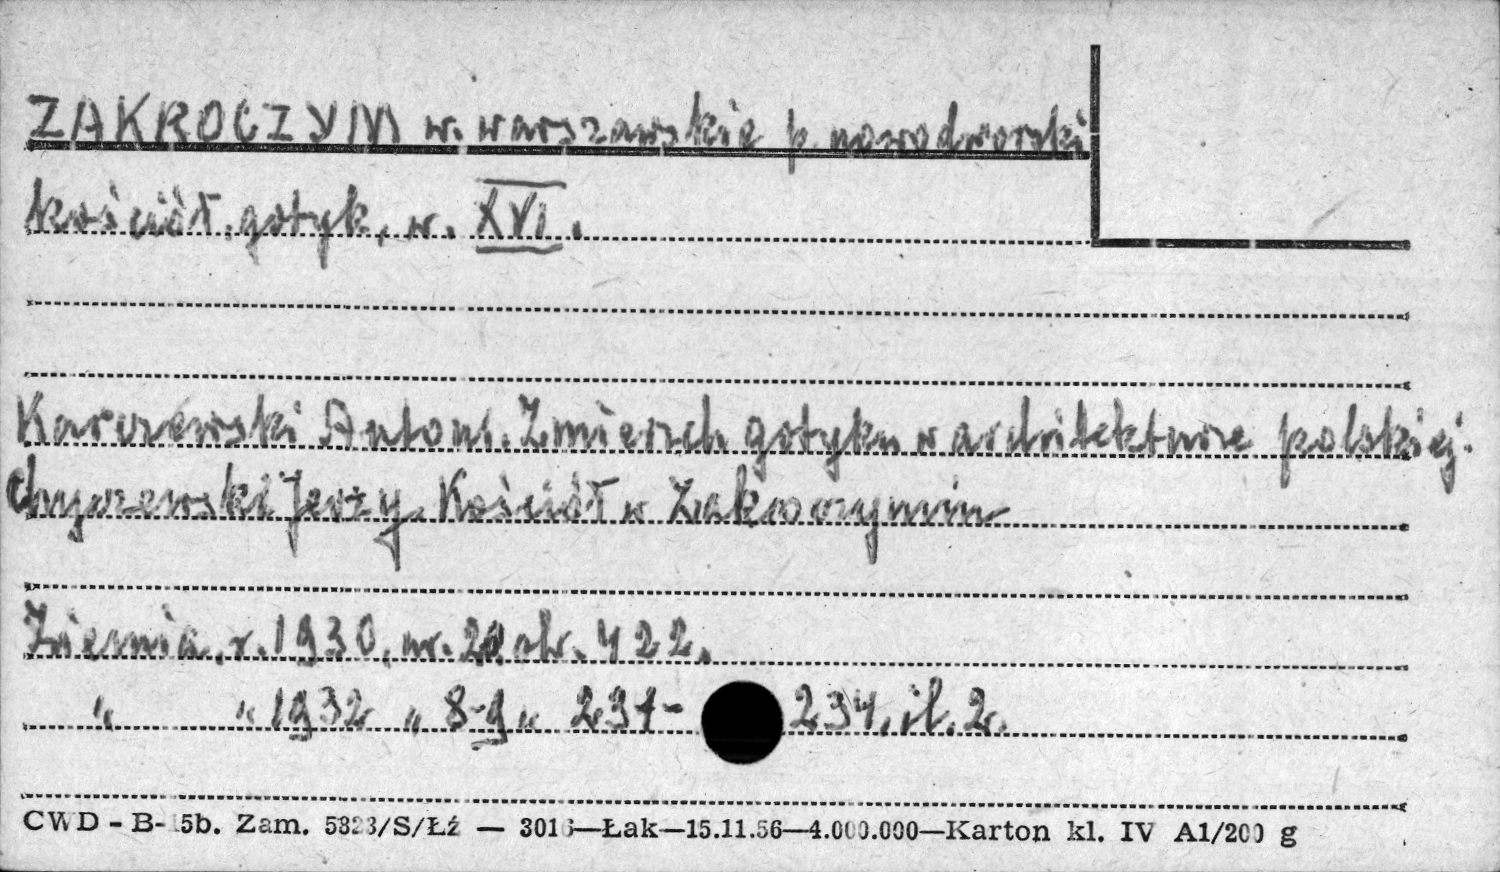 ZAKROCZYM w. warszawskie p. nowodworski
kościół, gotyk, w. XVI.
Karczewski Antoni. Zmierzch gotyku w architekturze polskiej.
Chyczewski Jerzy. Kościół w Zakroczymiu
Ziemia, r. 1930, nr. 20, str. 422.
" " 1932 " 8-9 " 231- 234, il. 2.
CWD - B- 5b. Zam. 5323/S/Łź — 3016—Łak—15.11.56—4.000.000—Karton kl. IV A1/200 g